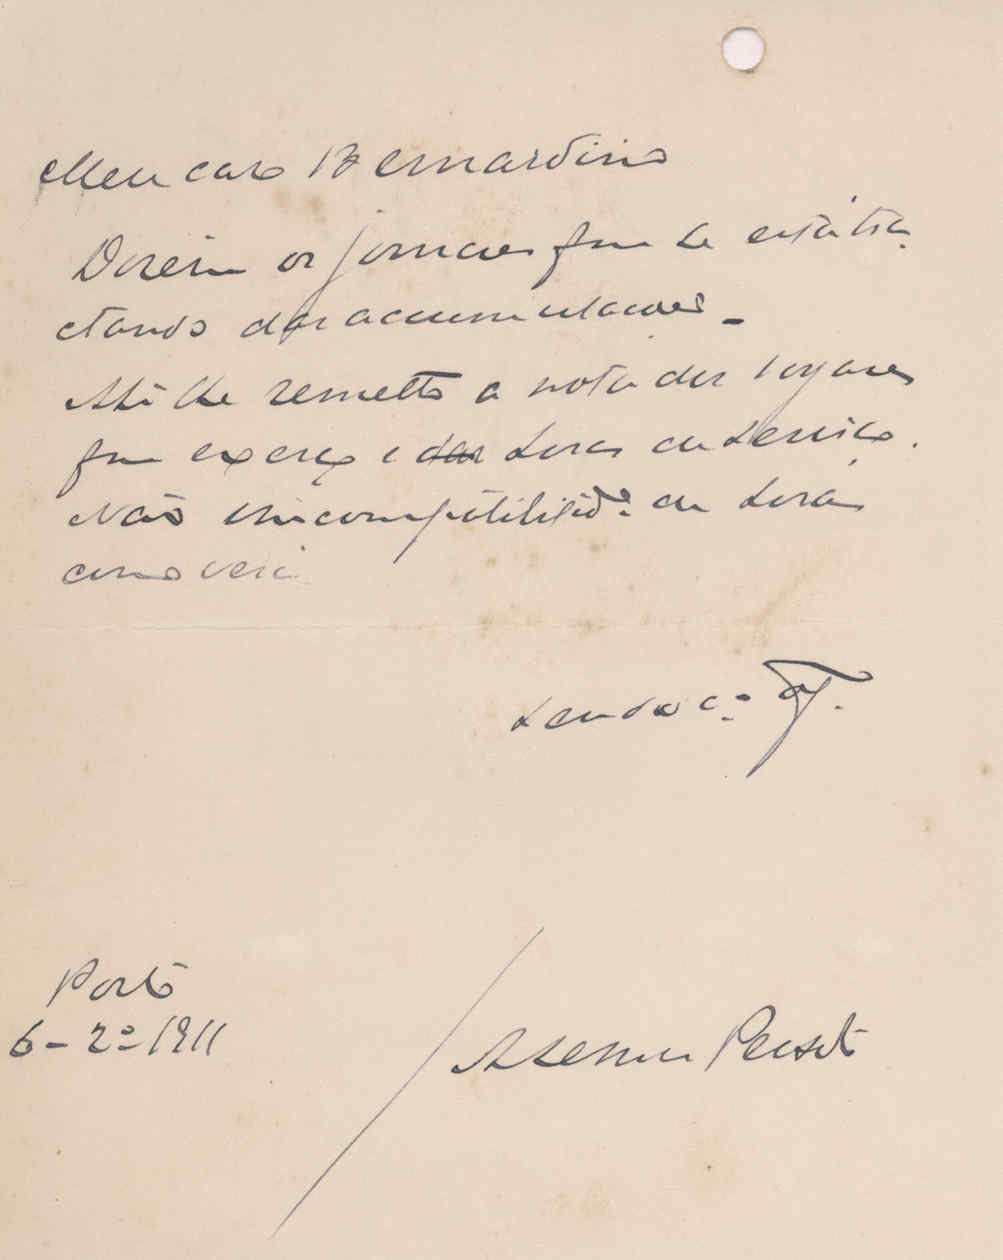 Meu caro Bernardino
Dizem os jornaes que se está tra-
ctando das accumulações.
Ahi lhe remetto a nota dos logares
que exerço e das horas de serviço.
Não ha incompatibilidde. de horas
como verá
Saudo
Porto
6-2º-1911
Peixoto